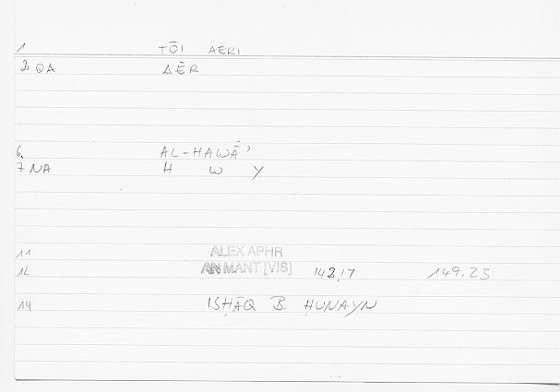 1 TŌI AERI
2. QA AĒR
6. AL-HAWĀʾ
7 NA H W Y
11 ALEX APHR
12 AN MANT [VIS] 142,17 149.23
14 ISḤĀQ B. ḤUNAYN